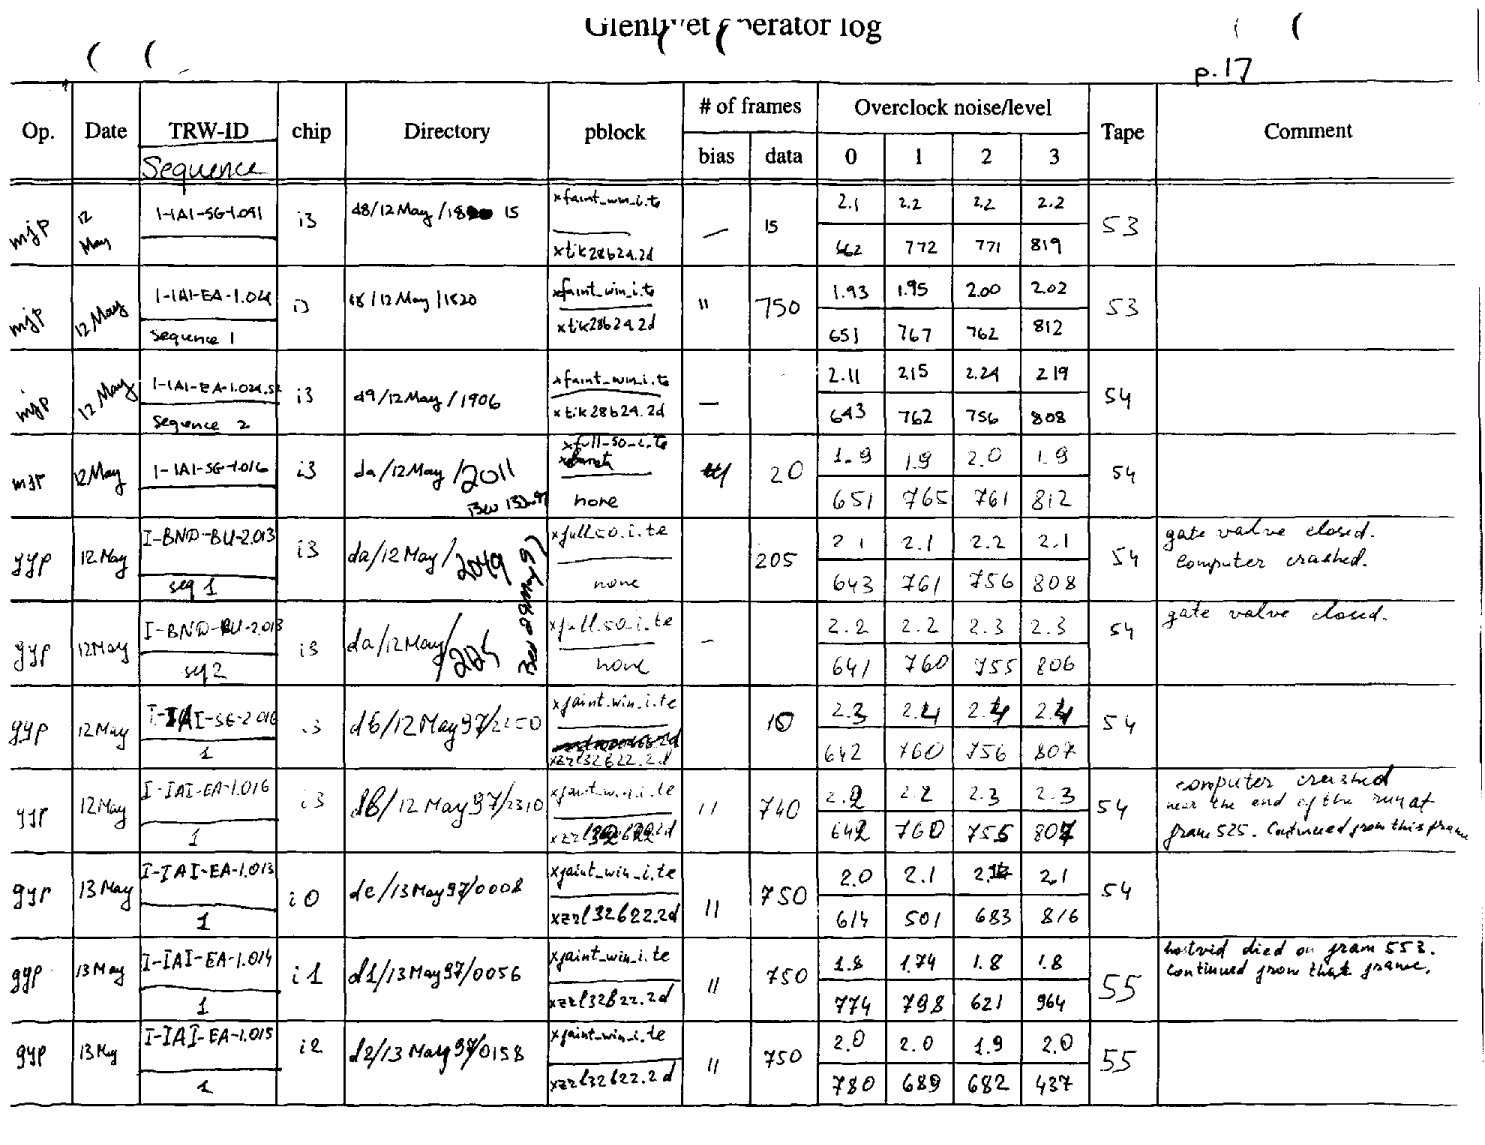 Glenlivet operator log
p.17
Op. Date TRW-ID chip Directory pblock # of frames Overclock noise/level Tape Comment
Sequence bias data 0 1 2 3
mjp 12 May I-IAI-SG-1.091 i3 d8/12May/18 15 xfaint_win_i.te — 15 2.1 2.2 2.2 2.2 53
xtik28b24.2d 662 772 771 819
mjp 12 May I-IAI-EA-1.021 i3 d8/12May/1820 xfaint_win_i.te " 750 1.93 1.95 2.00 2.02 53
Sequence 1 xtik28b24.2d 651 767 762 812
mjp 12 May I-IAI-EA-1.021.S2 i3 d9/12May/1906 xfaint_win_i.te — 2.11 2.15 2.24 2.19 54
Sequence 2 xtik28b24.2d 643 762 756 808
mjp 12May I-IAI-SG-1.016 i3 da/12May/2011 xfull-so-i.te 20 1.9 1.9 2.0 1.9 54
none 651 765 761 812
gyp 12May I-BND-BU-2.013 i3 da/12May/2049 xfullso.i.te 205 2.1 2.1 2.2 2.1 54 gate valve closed.
seq 1 none 643 761 756 808 Computer crashed.
gyp 12May I-BND-BU-2.013 i3 da/12May/ xfull.so.i.te – 2.2 2.2 2.3 2.3 54 gate valve closed.
seq 2 none 641 760 755 806
gyp 12May I-IAI-SG-2.016 i3 d6/12May97/2250 xfaint.win.i.te 10 2.3 2.4 2.4 2.4 54
1 xzzl32b22.2d 642 760 756 807
gyp 12May I-IAI-EA-1.016 i3 d8/12May97/2310 xfaint_win_i.te " 740 2.2 2.2 2.3 2.3 54 computer crashed
near the end of the run at
1 642 760 755 807 fram 525. Continued from this frame
gyp 13May I-IAI-EA-1.013 i0 de/13May97/0008 xfaint_win_i.te " 750 2.0 2.1 2.1 54
1 xzzl32b22.2d 614 501 683 816
gyp 13May I-IAI-EA-1.014 i1 d1/13May97/0056 xfaint_win_i.te " 750 1.8 1.74 1.8 1.8 55 hostvid died on fram 553.
Continued from that frame.
1 xzzl32b22.2d 774 798 621 964
gyp 13May I-IAI-EA-1.015 i2 d2/13May97/0158 xfaint_win_i.te " 750 2.0 2.0 1.9 2.0 55
1 xzzl32b22.2d 780 689 682 437